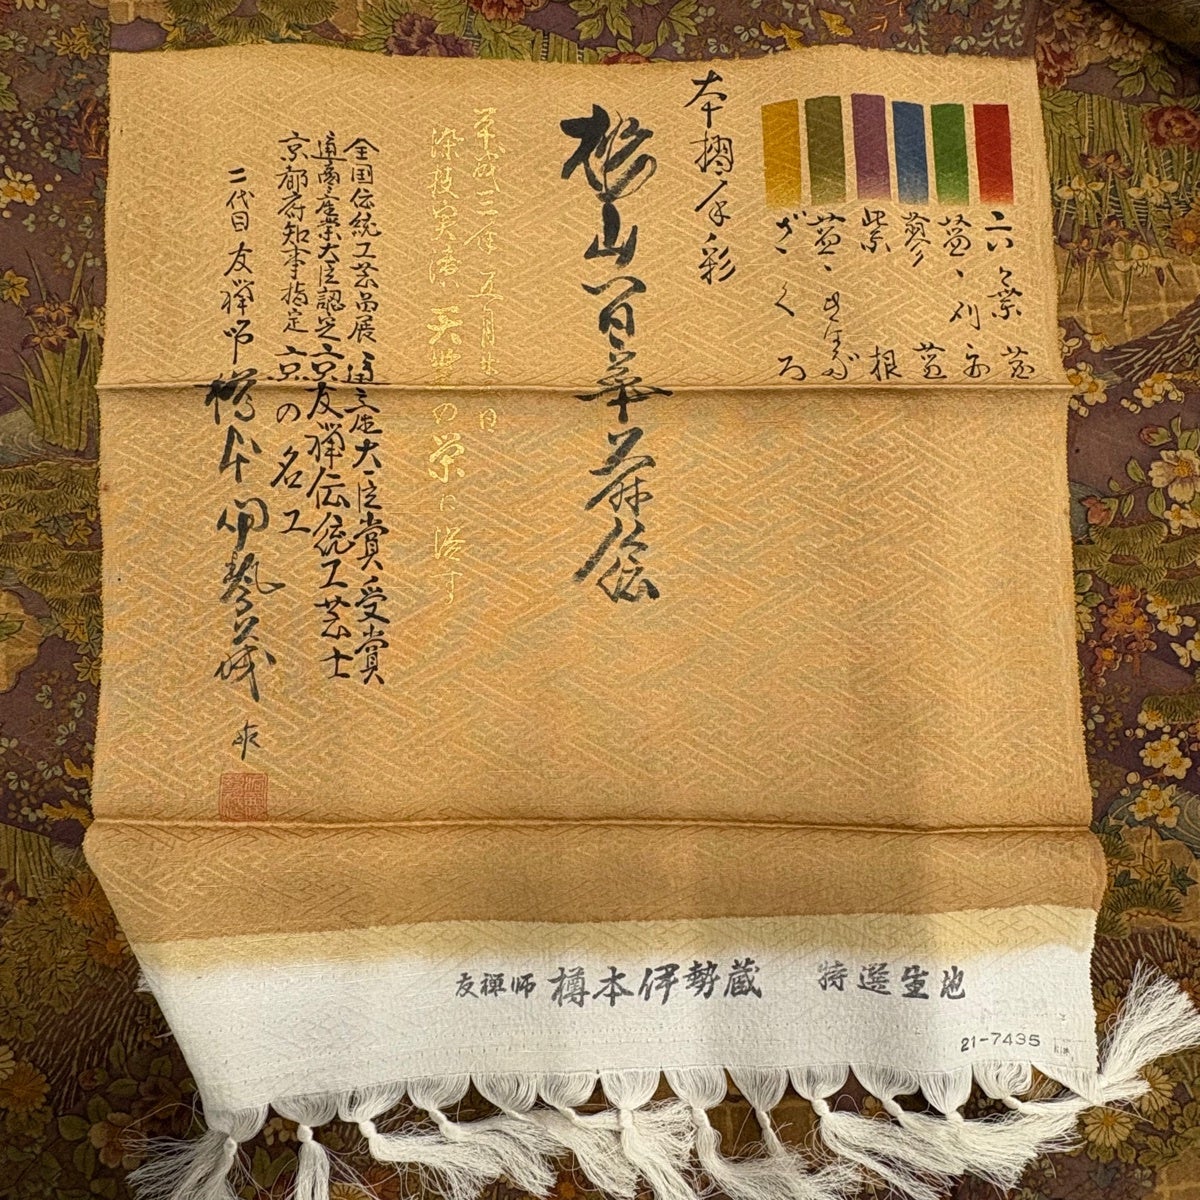 六葉茜
藍、刈安
蓼藍
紫根
ざくろ
本摺手彩
山百華
平成三年五月
染技実演 天覧の栄に浴す
全国伝統工芸品展 通産大臣賞受賞
通商産業大臣認定 京友禅伝統工芸士
京都府知事指定 京の名工
二代目友禅師 樽本伊勢蔵
友禅師 樽本伊勢蔵 特選生地
21-7435